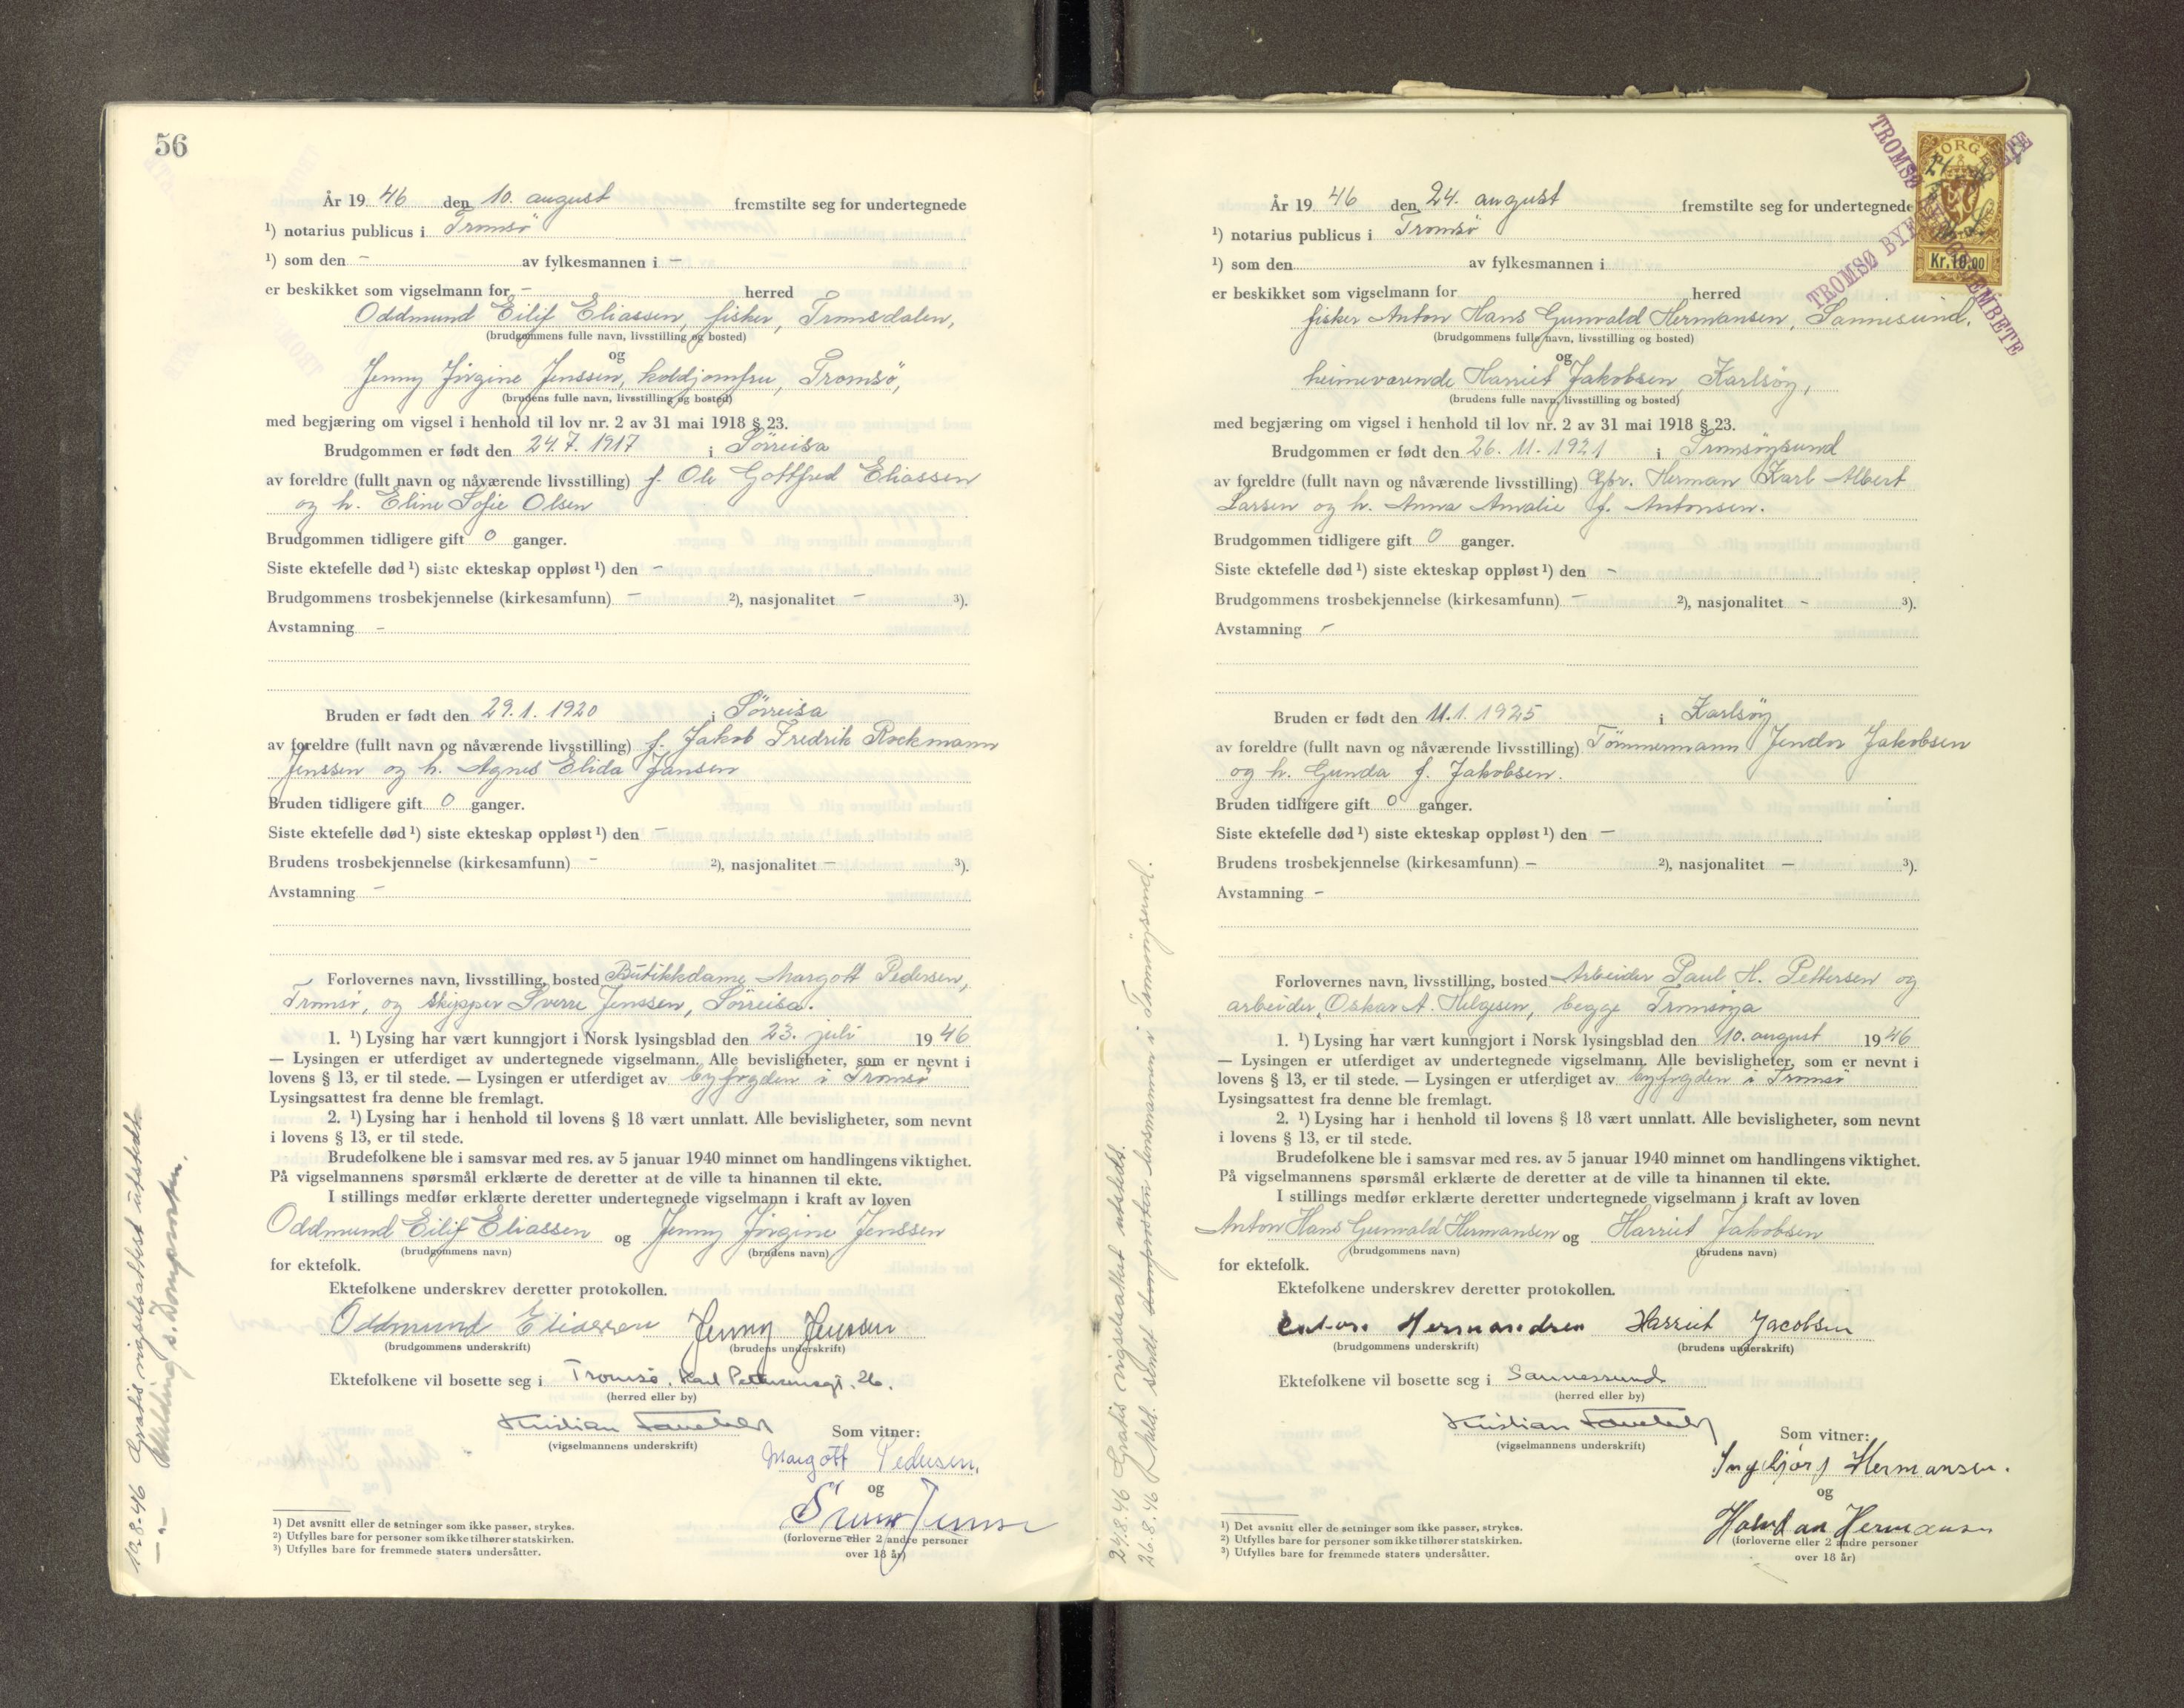 56
År 19 46 den 10. august fremstilte seg for undertegnede
¹) notarius publicus i Tromsö
¹) som den – av fylkesmannen i –
er beskikket som vigselmann for – herred
Oddmund Eilif Eliassen, fisker, Tromsdalen,
(brudgommens fulle navn, livsstilling og bosted)
og
Jenny Jörgine Jenssen, koldjomfru, Tromsö,
(brudens fulle navn, livsstilling og bosted)
med begjæring om vigsel i henhold til lov nr. 2 av 31 mai 1918 § 23.
Brudgommen er født den 24.7.1917 i Sörreisa
av foreldre (fullt navn og nåværende livsstilling) f. Ole Gottfred Eliassen
og h. Eline Sofie Olsen
Brudgommen tidligere gift 0 ganger.
Siste ektefelle død ¹) siste ekteskap oppløst ¹) den –
Brudgommens trosbekjennelse (kirkesamfunn) – ²), nasjonalitet – ³).
Avstamning –
Bruden er født den 29.1.1920 i Sörreisa
av foreldre (fullt navn og nåværende livsstilling) f. Jakob Fredrik Rockmann
Jenssen og h. Agnes Elida Jansen
Bruden tidligere gift 0 ganger.
Siste ektefelle død ¹) siste ekteskap oppløst ¹) den –
Brudens trosbekjennelse (kirkesamfunn) – ²), nasjonalitet – ³).
Avstamning –
Forlovernes navn, livsstilling, bosted Butikkdame Margott Pedersen,
Tromsö, og skipper Sverre Jenssen, Sörreisa.
1. ¹) Lysing har vært kunngjort i Norsk lysingsblad den 23. juli 19 46
— Lysingen er utferdiget av undertegnede vigselmann. Alle bevisligheter, som er nevnt i
lovens § 13, er til stede. — Lysingen er utferdiget av byfogden i Tromsö
Lysingsattest fra denne ble fremlagt.
2. ¹) Lysing har i henhold til lovens § 18 vært unnlatt. Alle bevisligheter, som nevnt
i lovens § 13, er til stede.
Brudefolkene ble i samsvar med res. av 5 januar 1940 minnet om handlingens viktighet.
På vigselmannens spørsmål erklærte de deretter at de ville ta hinannen til ekte.
I stillings medfør erklærte deretter undertegnede vigselmann i kraft av loven
Oddmund Eilif Eliassen og Jenny Jörgine Jenssen
(brudgommens navn) (brudens navn)
for ektefolk.
Ektefolkene underskrev deretter protokollen.
Oddmund Eliassen Jenny Jenssen
(brudgommens underskrift) (brudens underskrift)
Ektefolkene vil bosette seg i Tromsø. Karl Pettersensgt. 26.
(herred eller by)
Kristian
(vigselmannens underskrift)
Som vitner:
Margott Pedersen.
og
Sverre Jenssen
(forloverne eller 2 andre personer
over 18 år)
¹) Det avsnitt eller de setninger som ikke passer, strykes.
²) Utfylles bare for personer som ikke tilhører statskirken.
³) Utfylles bare for fremmede staters undersåtter.
10.8-46 Gratis vigselsattest utstedt.
–"– Melding s. Domprosten.
År 19 46 den 24. august fremstilte seg for undertegnede
¹) notarius publicus i Tromsö
¹) som den av fylkesmannen i
er beskikket som vigselmann for herred
fisker Anton Hans Gunvald Hermansen, Sannesund,
(brudgommens fulle navn, livsstilling og bosted)
og
heimeværende Harriet Jakobsen, Karlsöy,
(brudens fulle navn, livsstilling og bosted)
med begjæring om vigsel i henhold til lov nr. 2 av 31 mai 1918 § 23.
Brudgommen er født den 26.11.1921 i Tromsöysund
av foreldre (fullt navn og nåværende livsstilling) Gbr. Herman Karl Albert
Larsen og h. Anna Amalie f. Antonsen.
Brudgommen tidligere gift 0 ganger.
Siste ektefelle død ¹) siste ekteskap oppløst ¹) den –
Brudgommens trosbekjennelse (kirkesamfunn) – ²), nasjonalitet – ³).
Avstamning –
Bruden er født den 11.1.1925 i Karlsöy
av foreldre (fullt navn og nåværende livsstilling) Tömmermann Jendor Jakobsen
og h. Gunda f. Jakobsen.
Bruden tidligere gift 0 ganger.
Siste ektefelle død ¹) siste ekteskap oppløst ¹) den –
Brudens trosbekjennelse (kirkesamfunn) – ²), nasjonalitet – ³).
Avstamning –
Forlovernes navn, livsstilling, bosted Arbeider Paul H. Pettersen og
arbeider Oskar A. Helgesen, begge Tromsöya
1. ¹) Lysing har vært kunngjort i Norsk lysingsblad den 10. august 19 46
— Lysingen er utferdiget av undertegnede vigselmann. Alle bevisligheter, som er nevnt i
lovens § 13, er til stede. — Lysingen er utferdiget av byfogden i Tromsö
Lysingsattest fra denne ble fremlagt.
2. ¹) Lysing har i henhold til lovens § 18 vært unnlatt. Alle bevisligheter, som nevnt
i lovens § 13, er til stede.
Brudefolkene ble i samsvar med res. av 5 januar 1940 minnet om handlingens viktighet.
På vigselmannens spørsmål erklærte de deretter at de ville ta hinannen til ekte.
I stillings medfør erklærte deretter undertegnede vigselmann i kraft av loven
Anton Hans Gunvald Hermansen og Harriet Jakobsen
(brudgommens navn) (brudens navn)
for ektefolk.
Ektefolkene underskrev deretter protokollen.
Anton Hermandsen Harriet Jacobsen
(brudgommens underskrift) (brudens underskrift)
Ektefolkene vil bosette seg i Sannessund
(herred eller by)
Kristian
(vigselmannens underskrift)
Som vitner:
Ingebjørg Hermansen.
og
Halvdan Hermansen
(forloverne eller 2 andre personer
over 18 år)
¹) Det avsnitt eller de setninger som ikke passer, strykes.
²) Utfylles bare for personer som ikke tilhører statskirken.
³) Utfylles bare for fremmede staters undersåtter.
24.8.46 Gratis vigselsattest utstedt.
26.8.46 Meld. sendt domprosten lensmannen i Tromsöysund.
NORGE
Kr. 10.00
TROMSØ BYFOGDEMBETE